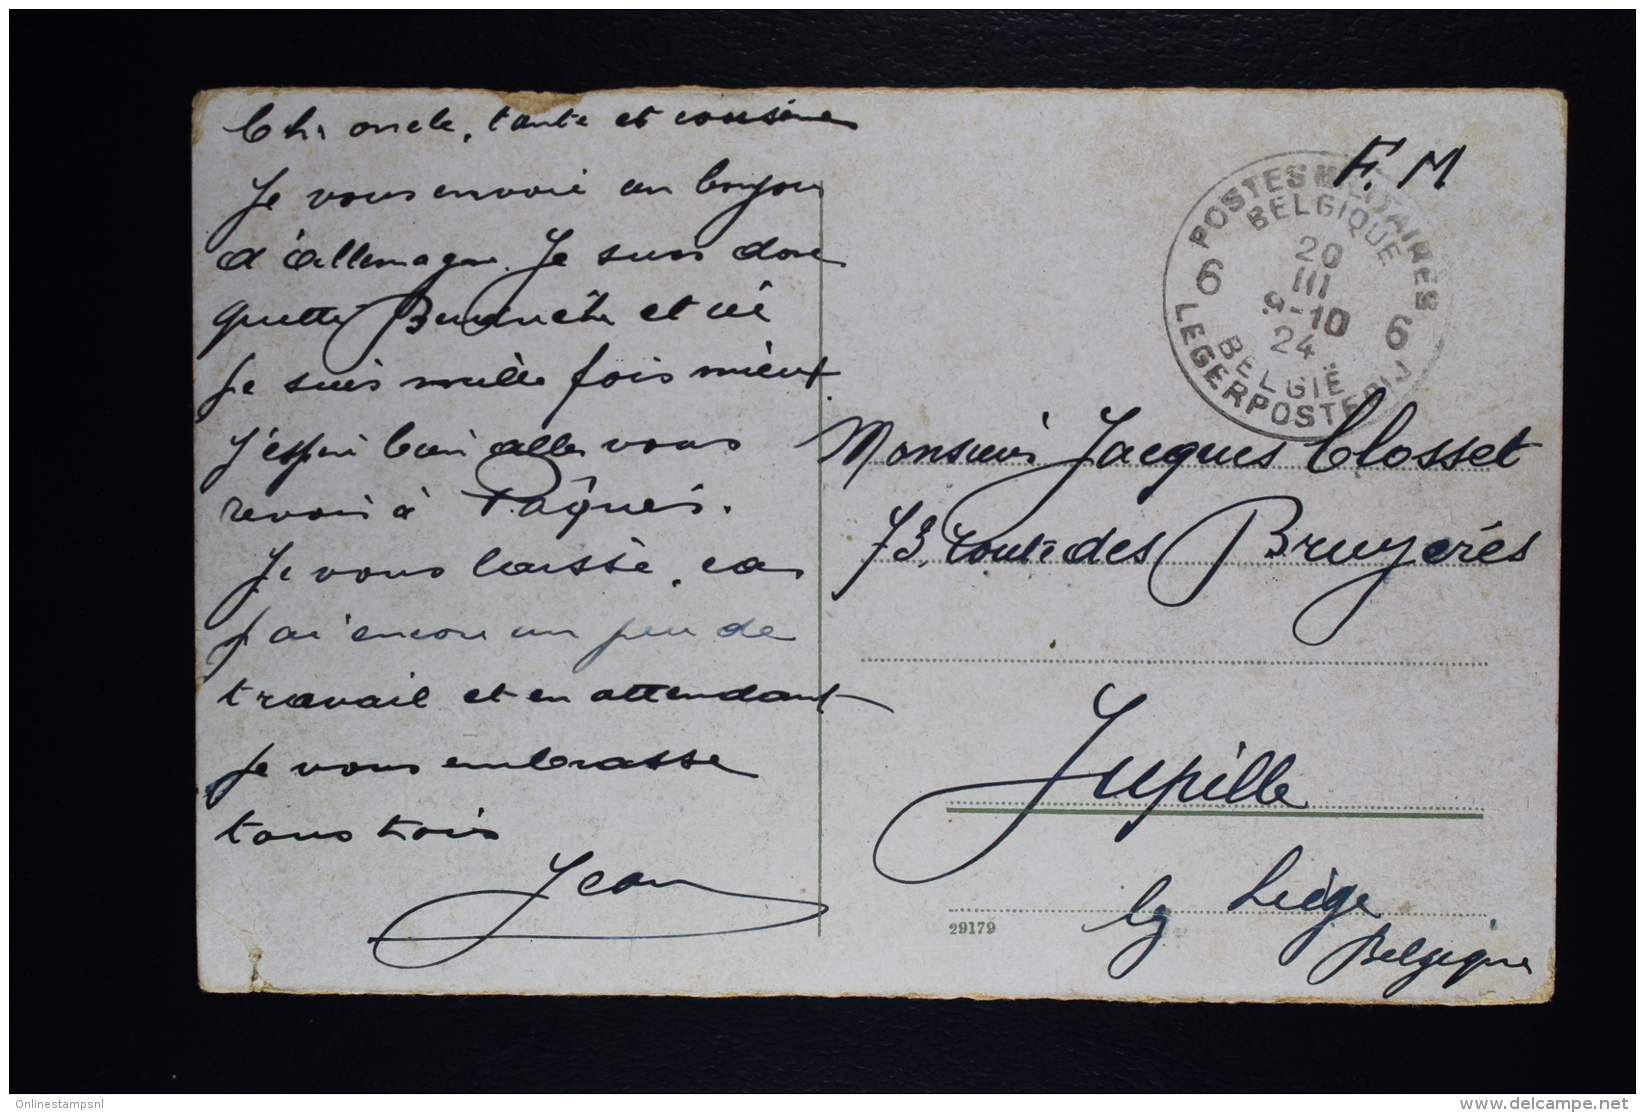 Chr oncle, tante et cousine
Je vous envoie un bonjour
d'allemagne. Je suis donc
quitté et ici
Je suis mille fois mieux.
J'espère bien aller vous
revoir à Pâques.
Je vous laisse, car
j'ai encore un peu de
travail et en attendant
je vous embrasse
tous trois
Jean
F. M
POSTES MILITAIRES
BELGIQUE
20
III
9-10
24
6 6
BELGIË
LEGERPOSTERIJ
Monsieur Jacques Closset
73, route des Bruyères
Jupille
lg Liège
Belgique
29179
Onlinestampsnl
delcampe.net